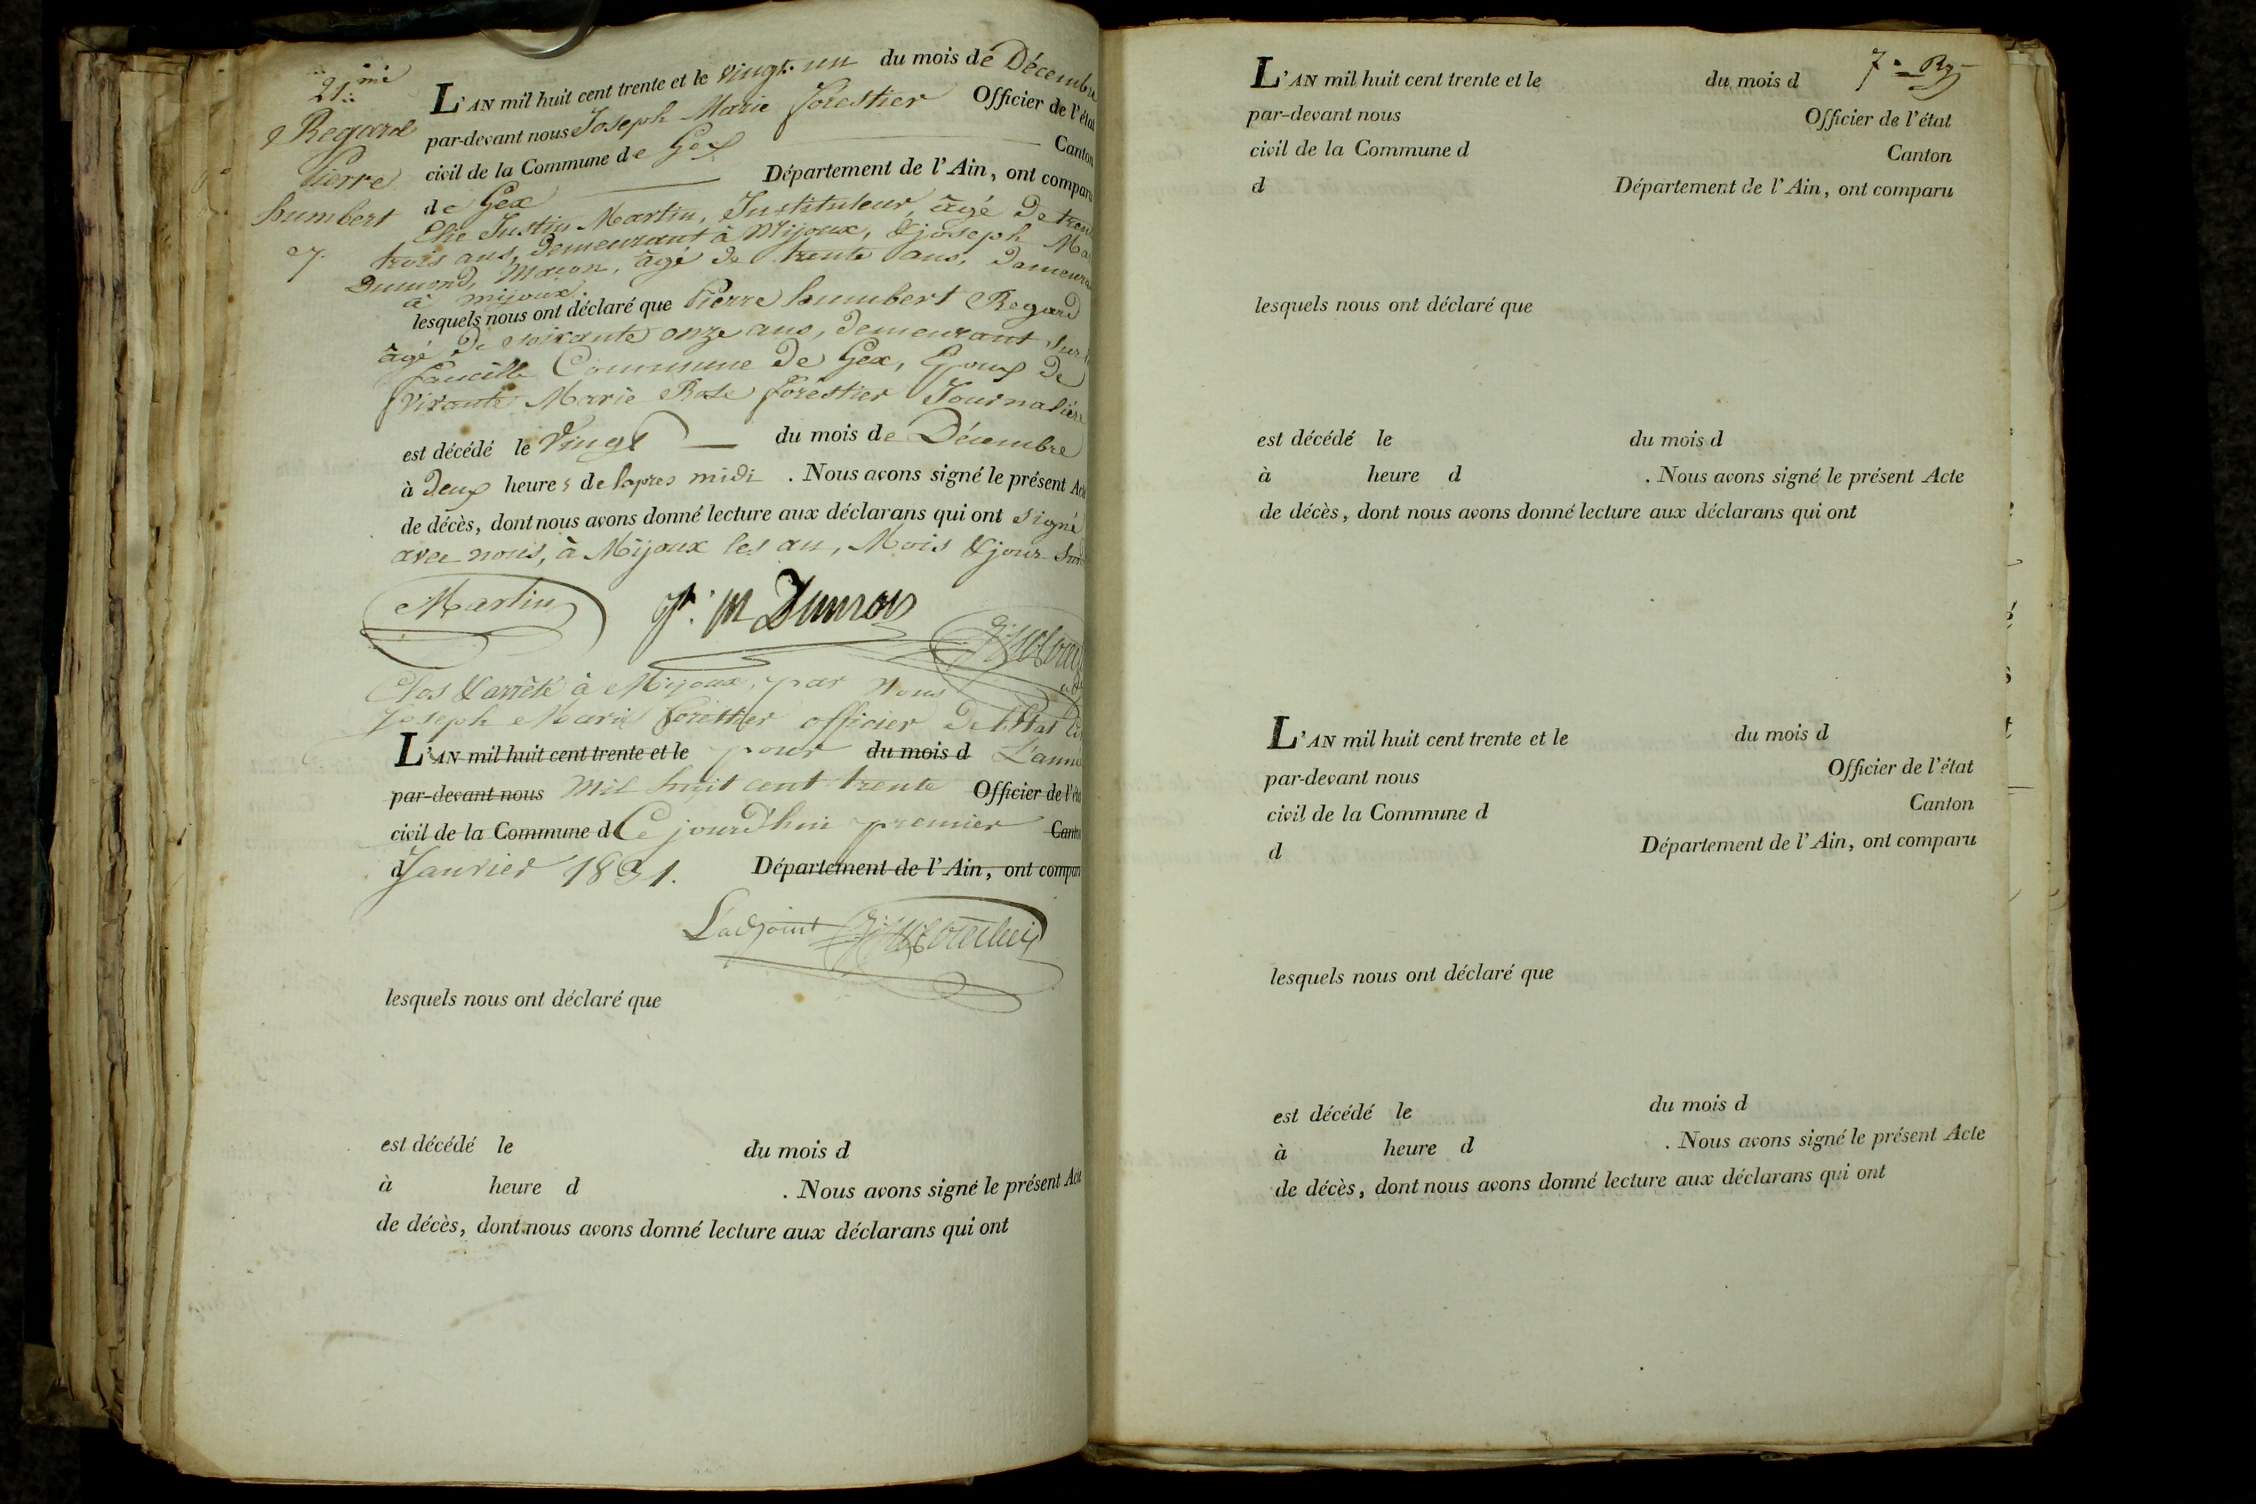 21.me
Regard
Pierre
humbert
7.
L'AN mil huit cent trente et le vingt un du mois de Décembre
par-devant nous Joseph Marie forestier Officier de l'état
civil de la Commune de Gex Canton
de Gex Département de l'Ain, ont comparu
Elie Justin Martin, Instituteur, âgé de
trois ans, demeurant à Mijoux, & joseph
Dumond, Maçon, âgé de trente ans,
à mijoux.
lesquels nous ont déclaré que Pierre humbert Regard
âgé de soixante onze ans, demeurant sur
faucille Commune de Gex, Epoux de
vivante Marie Rose forestier Journalière
est décédé le Vingt du mois de Décembre
à deux heures de lapres midi . Nous avons signé le présent Acte
de décès, dont nous avons donné lecture aux déclarans qui ont signé
avec nous, à Mijoux les an, Mois & jour
Martin
Jh. M
Clos & arrêté à Mijoux, par Nous
Joseph Marie forestier officier de l'Etat
L'AN mil huit cent trente et le pour du mois d L'anné
par-devant nous Mil huit cent trente Officier de l'éta
civil de la Commune d Ce jourd'hui premier Canto
d Janvier 1831. Département de l'Ain, ont compar
L'adjoint
lesquels nous ont déclaré que
est décédé le du mois d
à heure d . Nous avons signé le présent Acte
de décès, dont nous avons donné lecture aux déclarans qui ont
7.e
L'AN mil huit cent trente et le du mois d
par-devant nous Officier de l'état
civil de la Commune d Canton
d Département de l'Ain, ont comparu
lesquels nous ont déclaré que
est décédé le du mois d
à heure d . Nous avons signé le présent Acte
de décès, dont nous avons donné lecture aux déclarans qui ont
L'AN mil huit cent trente et le du mois d
par-devant nous Officier de l'état
civil de la Commune d Canton
d Département de l'Ain, ont comparu
lesquels nous ont déclaré que
est décédé le du mois d
à heure d . Nous avons signé le présent Acte
de décès, dont nous avons donné lecture aux déclarans qui ont